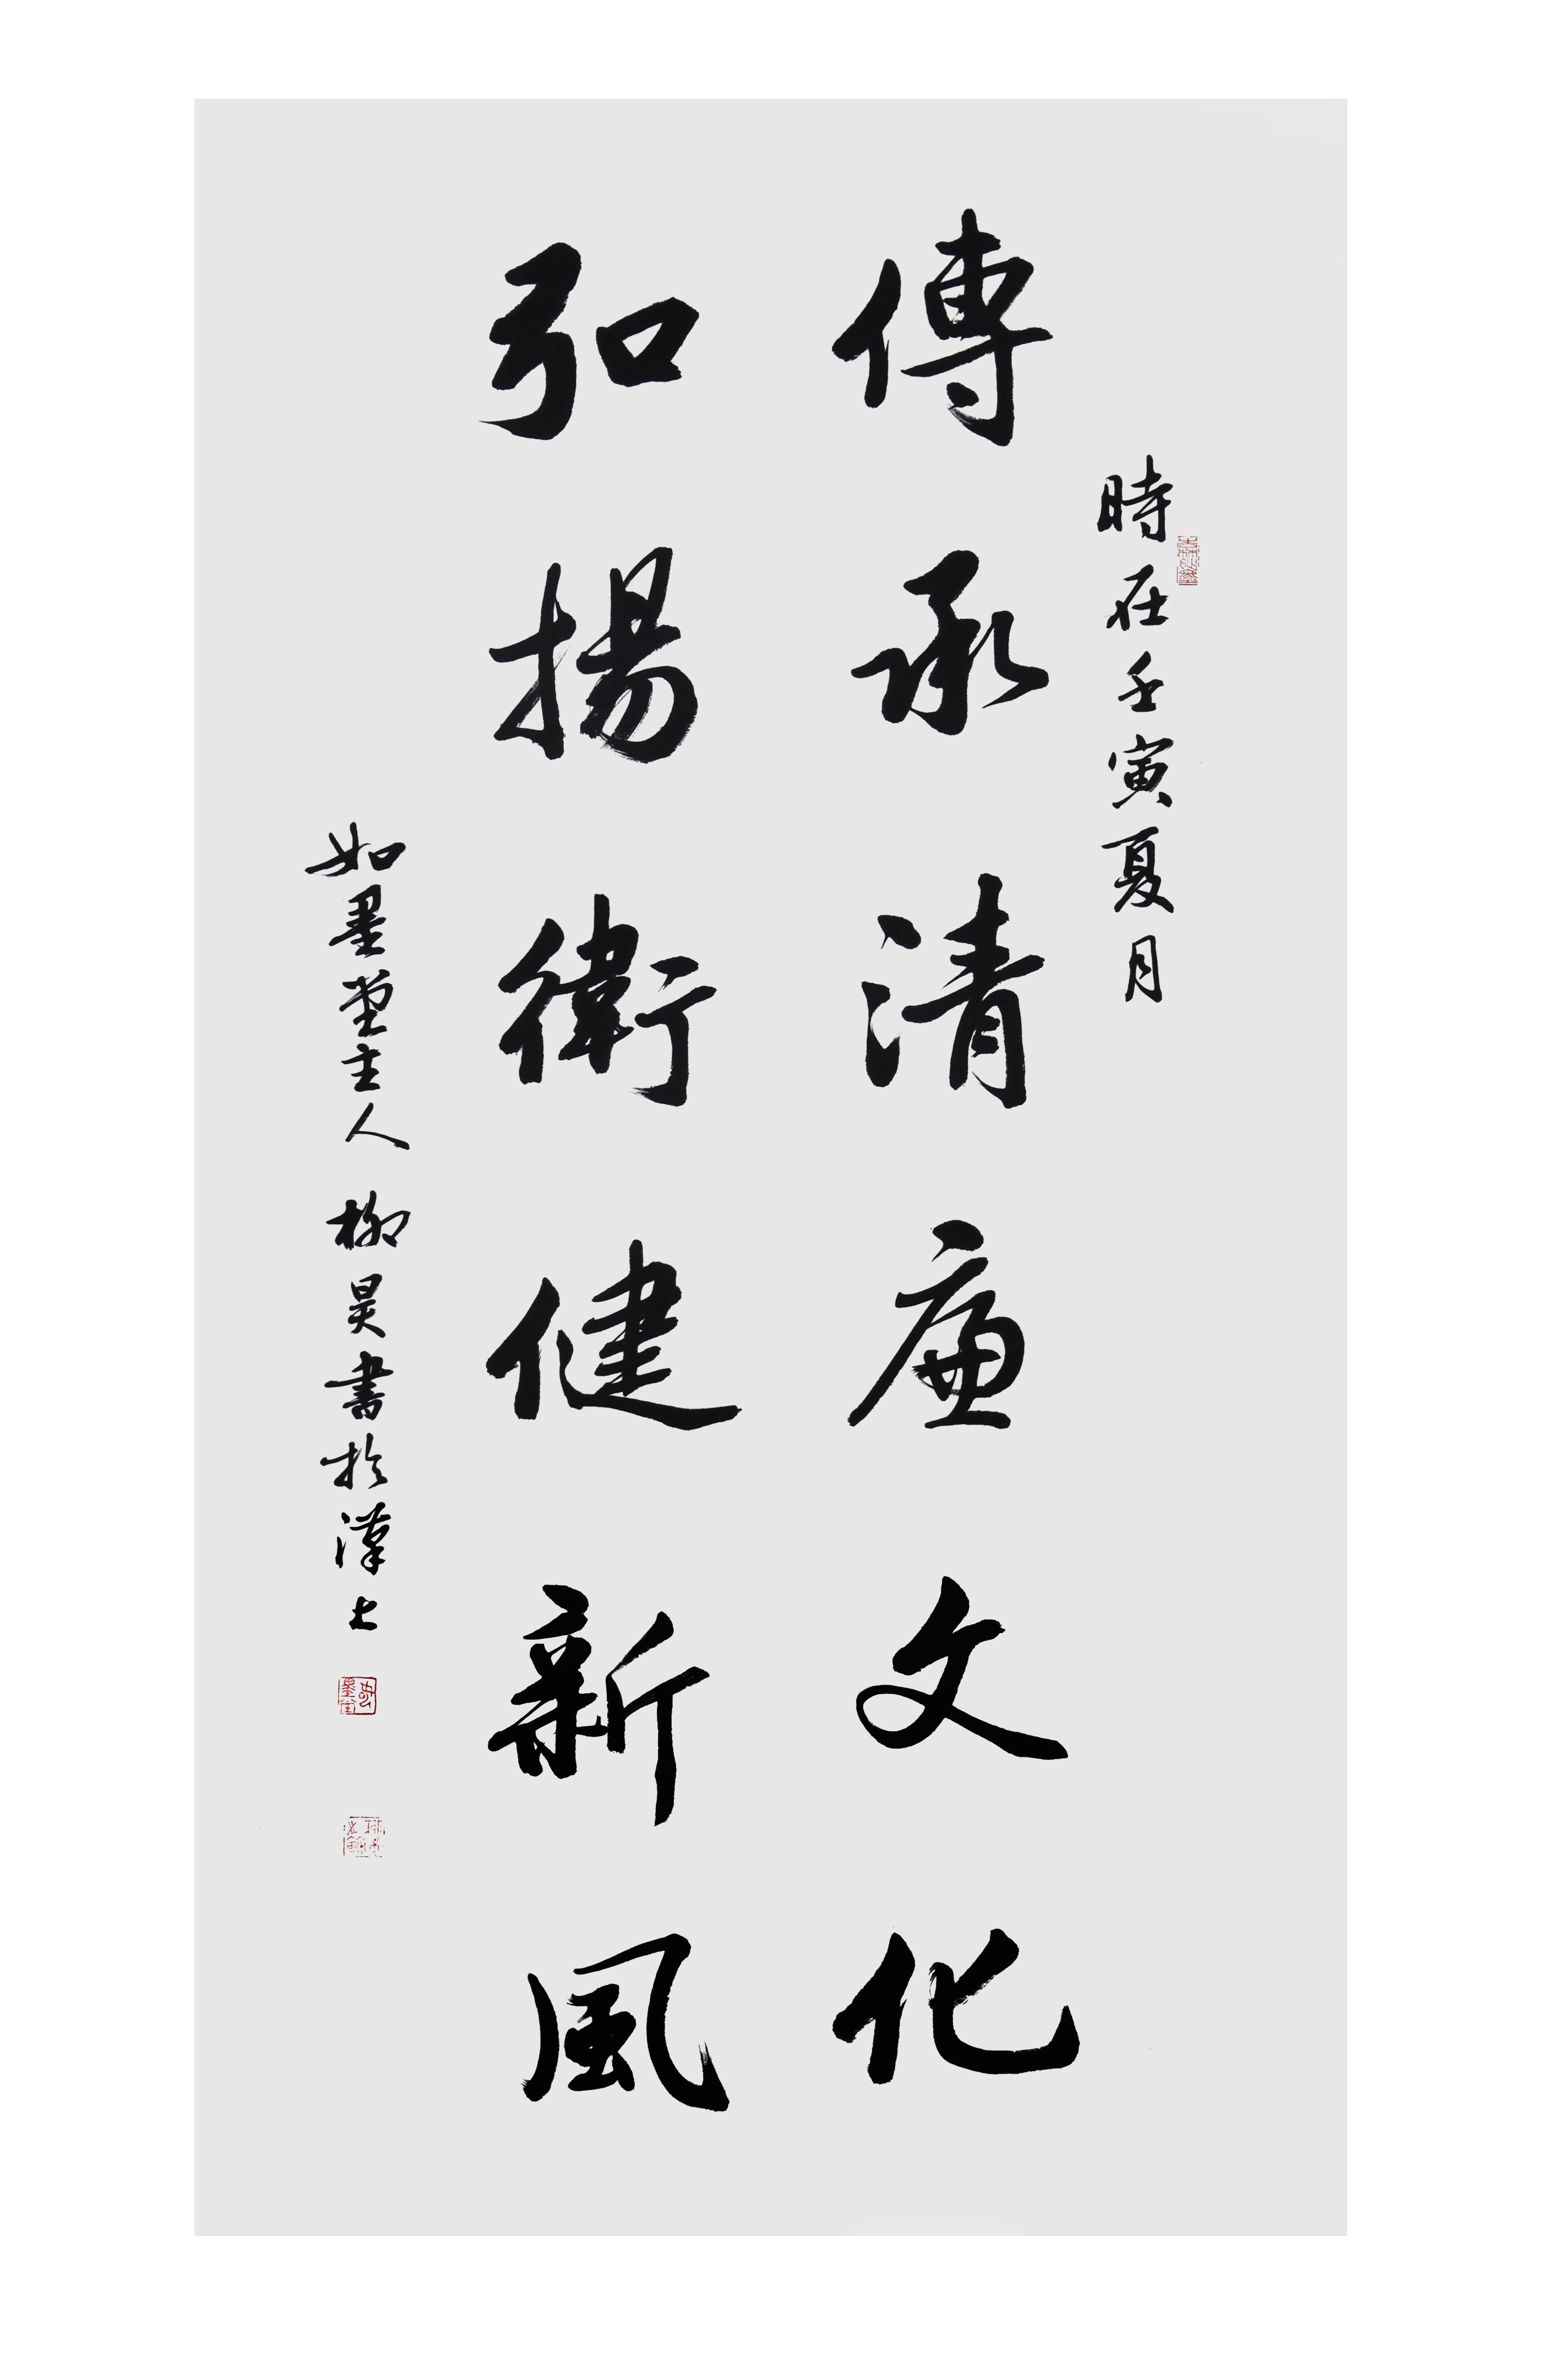 時在壬寅夏月
傳承清廉文化
弘揚衛健新風
如墨堂主人 柳昊書於漢上